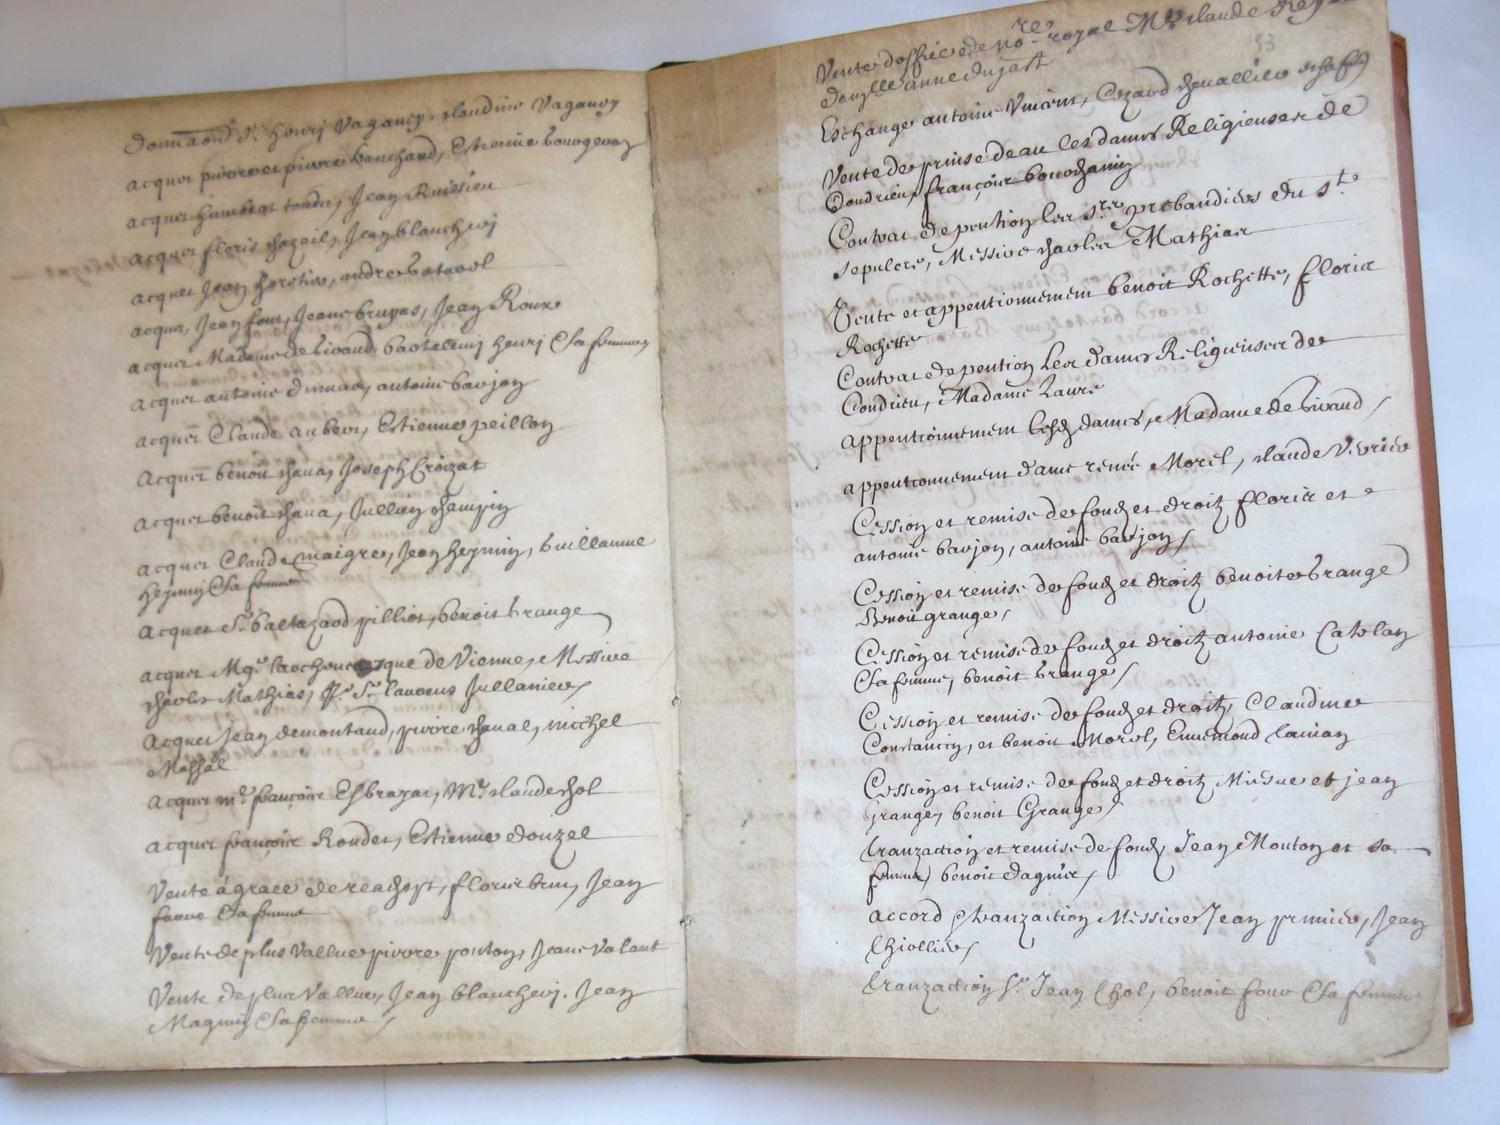 henry Vaganey, claudine Vaganey
acquet pierre et pierre bouchard, Estienne bourgeon
acquet humbert tondu, Jean
acquet floris chazail, Jean blanchevj
acquet Jean andre
acquet, Jean four, Jeane bruyas, Jean Roux
acquet Madame de Virand, bartelemj henrj & sa femme
acquet antoine dumas, antoine barjon
acquet Claude aubert, Estienne peillon
Acquet benoit chaua, Joseph Croizat
Acquet benoit chaua, Jullien
acquet Claude maigre, Jean heymin, Guillaume
heymin & sa femme
acquet Sr baltazard pilliot, benoit Grange
acquet Mgr de Vienne, Messire
charles Mathias, Sr laurens Jullanier
Acquet Jean demontaud, pierre chaual, michel
Massal
Acquet mr françois Mr claude chol
acquet françois Rondet, Estienne douzel
Vente à grace de reachept, floris brun, Jean
faure & sa femme
Vente de plus Vallue pierre ponton, Jeane Valant
Vente de plus Vallue, Jean blanchevj. Jean
Magnin & sa femme
Vente d'office de nore royal Mr claude
damlle anne dujast
Eschange antoine Vincent, Cezard cheuallier
Vente de prinse d'eau les dames Religieuses de
Condrieu, françois bouchanin
Contrat de pention les srs prebandiers du st
sepulcre, Messire charles Mathias
Vente et appentionnement benoit Rochette, floris
Rochette
Contrat de pention Les dames Religieuses de
Condrieu, Madame Laure
appentionnement lesd dames, Madame de Virand
appentionnement dame renée Morel, claude Verrier
Cession et remise de fondz et droitz floris et
antoine barjon, antoine barjon
Cession et remise de fondz et droitz benoite Grange
Benoit grange
Cession et remise de fondz et droitz antoine Catelan
& sa femme, benoit Grange
Cession et remise de fondz et droitz, Claudine
Constancin, et benoit Morel, Ennemond lainan
Cession et remise de fondz et droitz et jean
Grange, benoit Grange
tranzaction et remise de fondz Jean Mouton et sa
femme, benoit dagnier
accord & tranzaction Messire Jean prunier, Jean
thiollier
tranzaction Sr Jean Chol, benoit four & sa femme